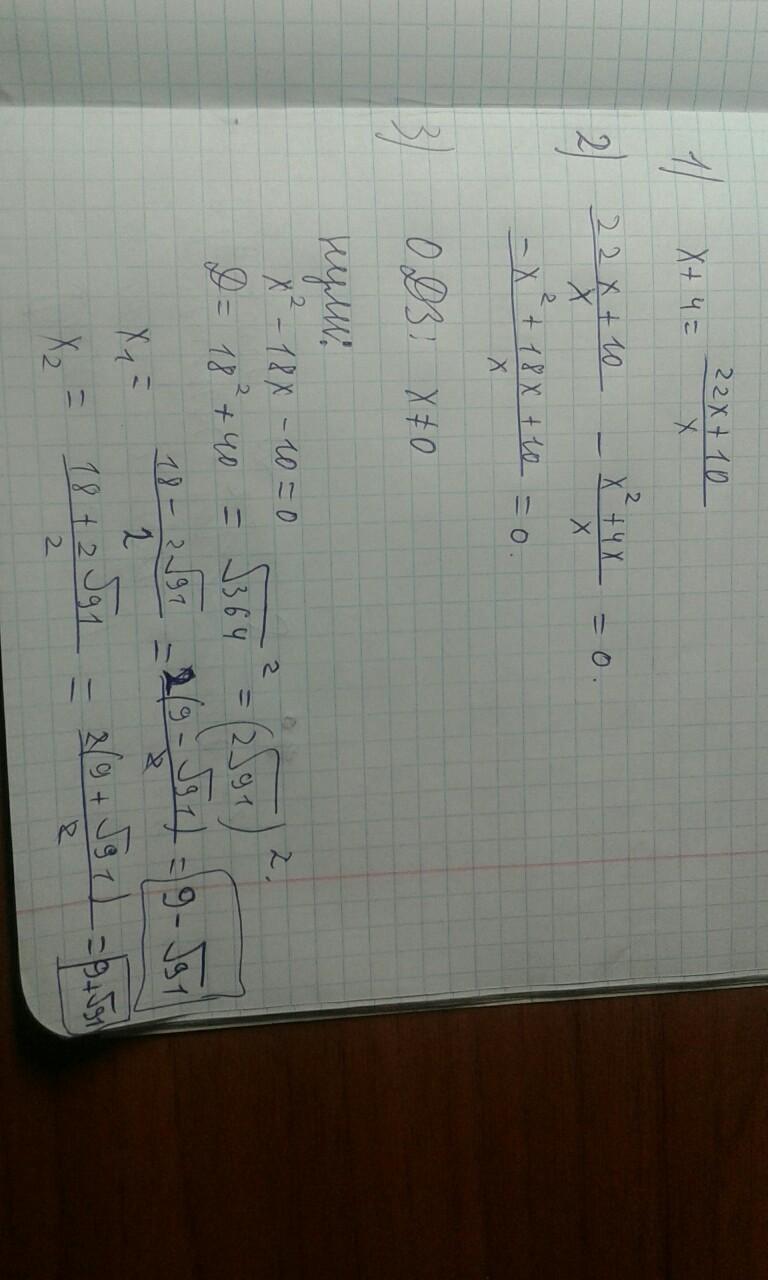 1) x + 4 = (22x + 10)/x
2) (22x + 10)/x − (x² + 4x)/x = 0.
(−x² + 18x + 10)/x = 0.
3) ОДЗ: x ≠ 0
нули:
x² − 18x − 10 = 0
D = 18² + 40 = √364² = (2√91)².
x₁ = (18 − 2√91)/2 = 2(9 − √91)/2 = 9 − √91
x₂ = (18 + 2√91)/2 = 2(9 + √91)/2 = 9 + √91